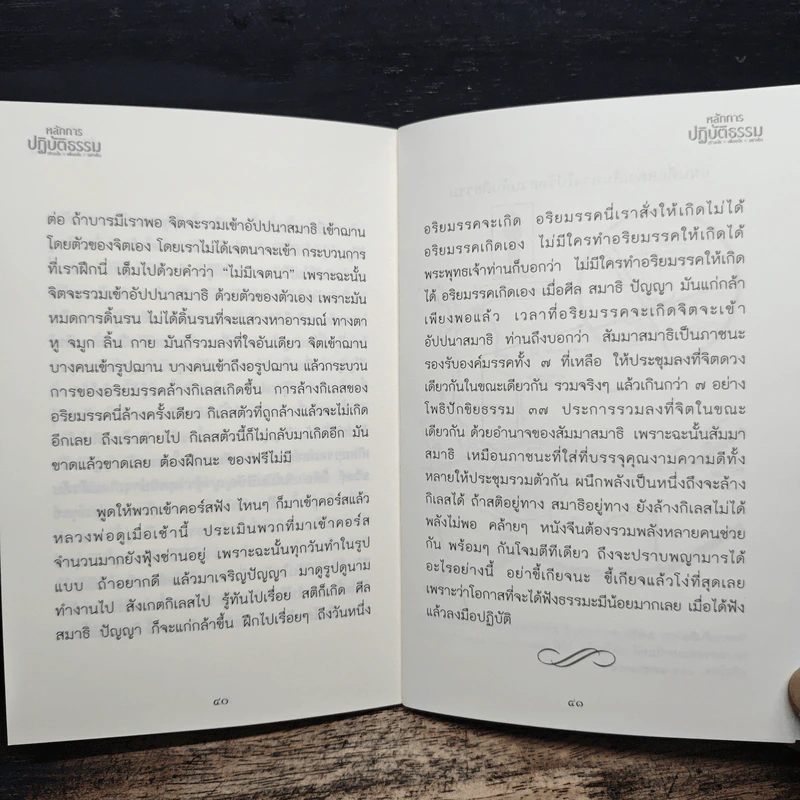 หลักการ
ปฏิบัติธรรม
ต่อ ถ้าบารมีเราพอ จิตจะรวมเข้าอัปปนาสมาธิ เข้าฌาน
โดยตัวของจิตเอง โดยเราไม่ได้เจตนาจะเข้า กระบวนการ
ที่เราฝึกนี่ เต็มไปด้วยคำว่า “ไม่มีเจตนา” เพราะฉะนั้น
จิตจะรวมเข้าอัปปนาสมาธิ ด้วยตัวของตัวเอง เพราะมัน
หมดการดิ้นรน ไม่ได้ดิ้นรนที่จะแสวงหาอารมณ์ ทางตา
หู จมูก ลิ้น กาย มันก็รวมลงที่ใจอันเดียว จิตเข้าฌาน
บางคนเข้ารูปฌาน บางคนเข้าถึงอรูปฌาน แล้วกระบวน
การของอริยมรรคล้างกิเลสเกิดขึ้น การล้างกิเลสของ
อริยมรรคนี่ล้างครั้งเดียว กิเลสตัวที่ถูกล้างแล้วจะไม่เกิด
อีกเลย ถึงเราตายไป กิเลสตัวนี้ก็ไม่กลับมาเกิดอีก มัน
ขาดแล้วขาดเลย ต้องฝึกนะ ของฟรีไม่มี
พูดให้พวกเข้าคอร์สฟัง ไหนๆ ก็มาเข้าคอร์สแล้ว
หลวงพ่อดูเมื่อเช้านี้ ประเมินพวกที่มาเข้าคอร์ส
จำนวนมากยังฟุ้งซ่านอยู่ เพราะฉะนั้นทุกวันทำในรูป
แบบ ถ้าอยากดี แล้วมาเจริญปัญญา มาดูรูปดูนาม
ทำงานไป สังเกตกิเลสไป รู้ทันไปเรื่อย สติก็เกิด ศีล
สมาธิ ปัญญา ก็จะแก่กล้าขึ้น ฝึกไปเรื่อยๆ ถึงวันหนึ่ง
๔๐
หลักการ
ปฏิบัติธรรม
อริยมรรคจะเกิด อริยมรรคนี่เราสั่งให้เกิดไม่ได้
อริยมรรคเกิดเอง ไม่มีใครทำอริยมรรคให้เกิดได้
พระพุทธเจ้าท่านก็บอกว่า ไม่มีใครทำอริยมรรคให้เกิด
ได้ อริยมรรคเกิดเอง เมื่อศีล สมาธิ ปัญญา มันแก่กล้า
เพียงพอแล้ว เวลาที่อริยมรรคจะเกิดจิตจะเข้า
อัปปนาสมาธิ ท่านถึงบอกว่า สัมมาสมาธิเป็นภาชนะ
รองรับองค์มรรคทั้ง ๗ ที่เหลือ ให้ประชุมลงที่จิตดวง
เดียวกันในขณะเดียวกัน รวมจริงๆ แล้วเกินกว่า ๗ อย่าง
โพธิปักขิยธรรม ๓๗ ประการรวมลงที่จิตในขณะ
เดียวกัน ด้วยอำนาจของสัมมาสมาธิ เพราะฉะนั้นสัมมา
สมาธิ เหมือนภาชนะที่ใส่ที่บรรจุคุณงามความดีทั้ง
หลายให้ประชุมรวมตัวกัน ผนึกพลังเป็นหนึ่งถึงจะล้าง
กิเลสได้ ถ้าสติอยู่ทาง สมาธิอยู่ทาง ยังล้างกิเลสไม่ได้
พลังไม่พอ คล้ายๆ หนังจีนต้องรวมพลังหลายคนช่วย
กัน พร้อมๆ กันโจมตีทีเดียว ถึงจะปราบพญามารได้
อะไรอย่างนี้ อย่าขี้เกียจนะ ขี้เกียจแล้วโง่ที่สุดเลย
เพราะว่าโอกาสที่จะได้ฟังธรรมะมีน้อยมากเลย เมื่อได้ฟัง
แล้วลงมือปฏิบัติ
๔๑